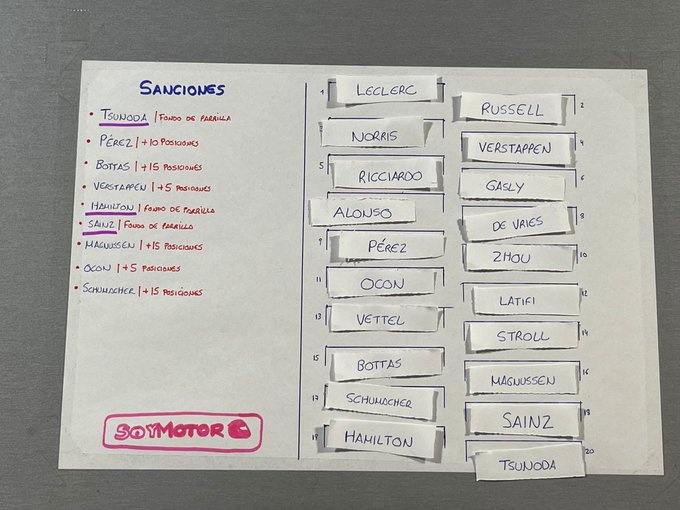 SANCIONES
• TSUNODA | FONDO DE PARRILLA
• PÉREZ | +10 POSICIONES
• BOTTAS | +15 POSICIONES
• VERSTAPPEN | +5 POSICIONES
• HAMILTON | FONDO DE PARRILLA
• SAINZ | FONDO DE PARRILLA
• MAGNUSSEN | +15 POSICIONES
• OCON | +5 POSICIONES
• SCHUMACHER | +15 POSICIONES
SOYMOTOR
1 LECLERC
RUSSELL 2
NORRIS
VERSTAPPEN 4
5 RICCIARDO
GASLY 6
ALONSO
DE VRIES 8
9 PÉREZ
ZHOU 10
11 OCON
LATIFI 12
13 VETTEL
STROLL 14
15 BOTTAS
MAGNUSSEN 16
17 SCHUMACHER
SAINZ 18
19 HAMILTON
TSUNODA 20